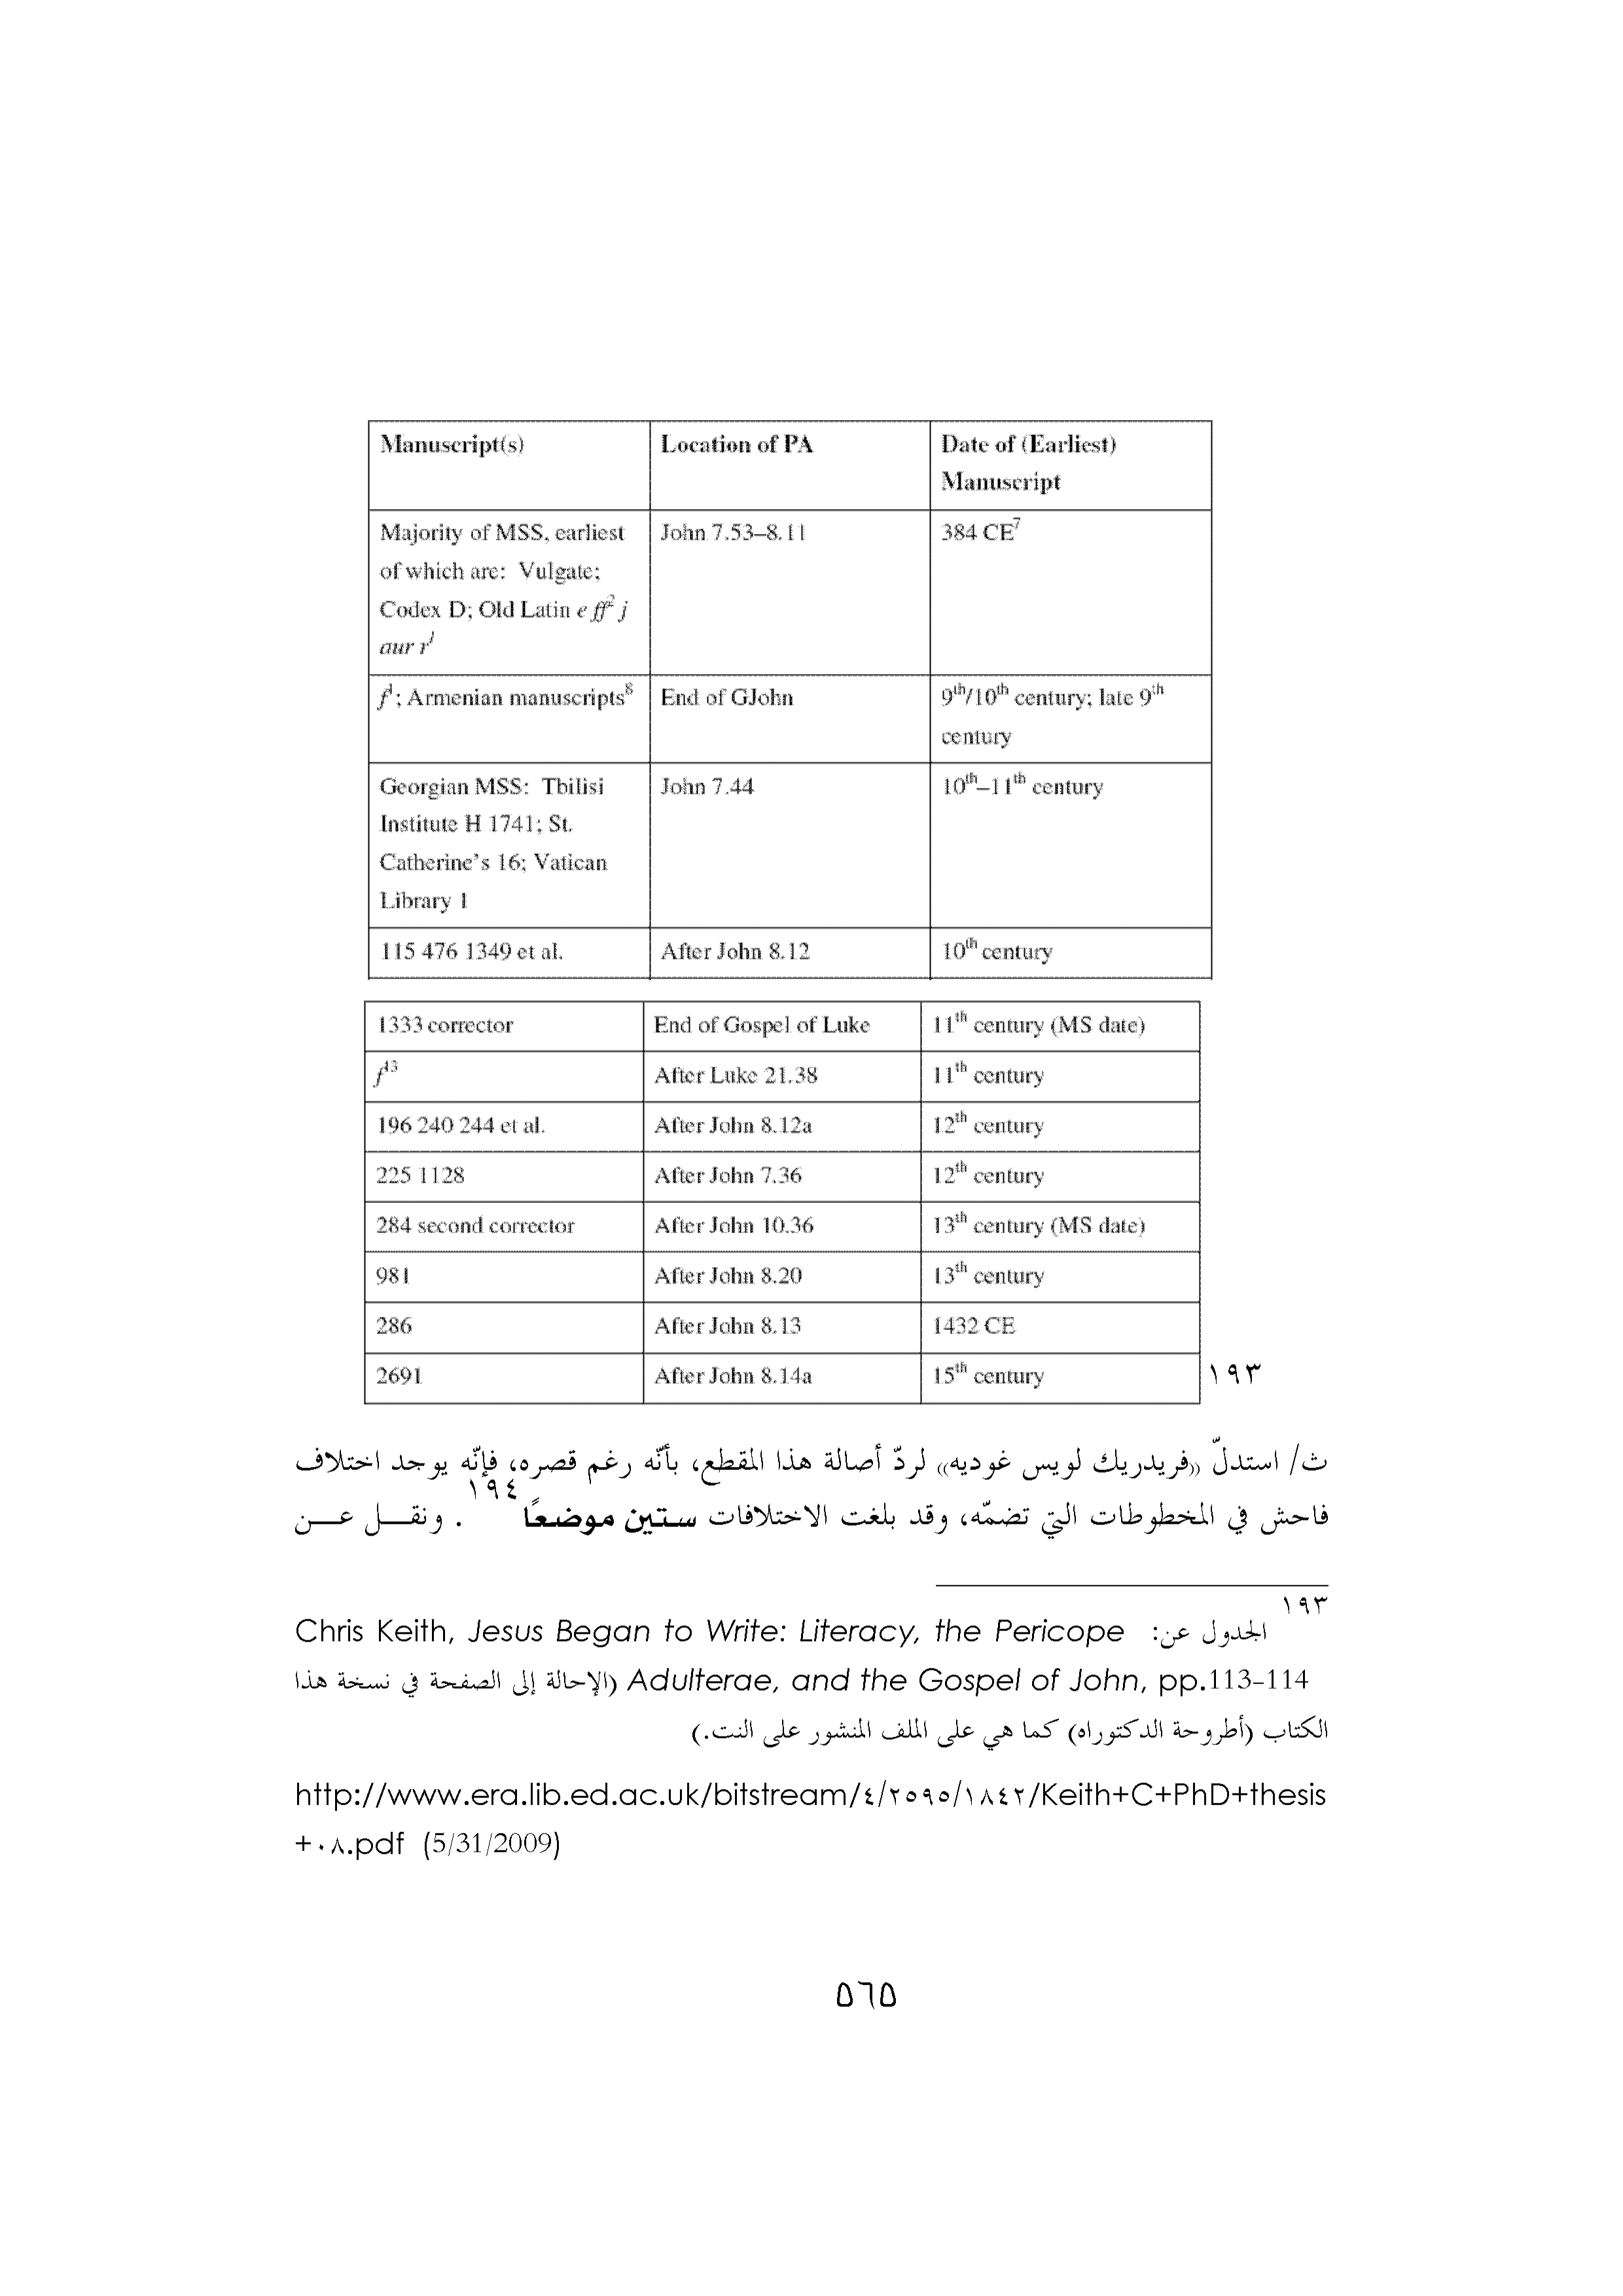 Manuscript(s) Location of PA Date of (Earliest)
Manuscript
Majority of MSS, earliest John 7.53–8.11 384 CE7
of which are: Vulgate;
Codex D; Old Latin e ff2 j
aur r1
f1; Armenian manuscripts8 End of GJohn 9th/10th century; late 9th
century
Georgian MSS: Tbilisi John 7.44 10th–11th century
Institute H 1741; St.
Catherine's 16; Vatican
Library 1
115 476 1349 et al. After John 8.12 10th century
1333 corrector End of Gospel of Luke 11th century (MS date)
f13 After Luke 21.38 11th century
196 240 244 et al. After John 8.12a 12th century
225 1128 After John 7.36 12th century
284 second corrector After John 10.36 13th century (MS date)
981 After John 8.20 13th century
286 After John 8.13 1432 CE
2691 After John 8.14a 15th century ١٩٣
ث/ استدلّ «فريدريك لويس غوديه» لردّ أصالة هذا المقطع، بأنّه رغم قصره، فإنّه يوجد اختلاف
فاحش في المخطوطات التي تضمّه، وقد بلغت الاختلافات ستين موضعًا ١٩٤ . ونقل عن
١٩٣
الجدول عن: Chris Keith, Jesus Began to Write: Literacy, the Pericope
Adulterae, and the Gospel of John, pp.113-114 (الإحالة إلى الصفحة في نسخة هذا
الكتاب (أطروحة الدكتوراه) كما هي على الملف المنشور على النت.)
http://www.era.lib.ed.ac.uk/bitstream/٤/٢٥٩٥/١٨٤٢/Keith+C+PhD+thesis
+٠٨.pdf (5/31/2009)
٥٦٥